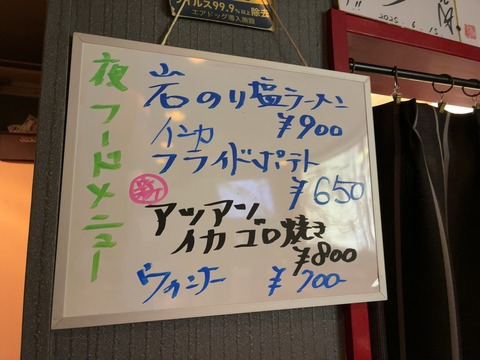 ウイルス99.9%以上除去
エアドッグ導入施設
2025.6.15
夜フードメニュー
岩のり塩ラーメン
¥900
インカ
フライドポテト
¥650
新
アツアツ
イカゴロ焼き
¥800
ウインナー ¥700-